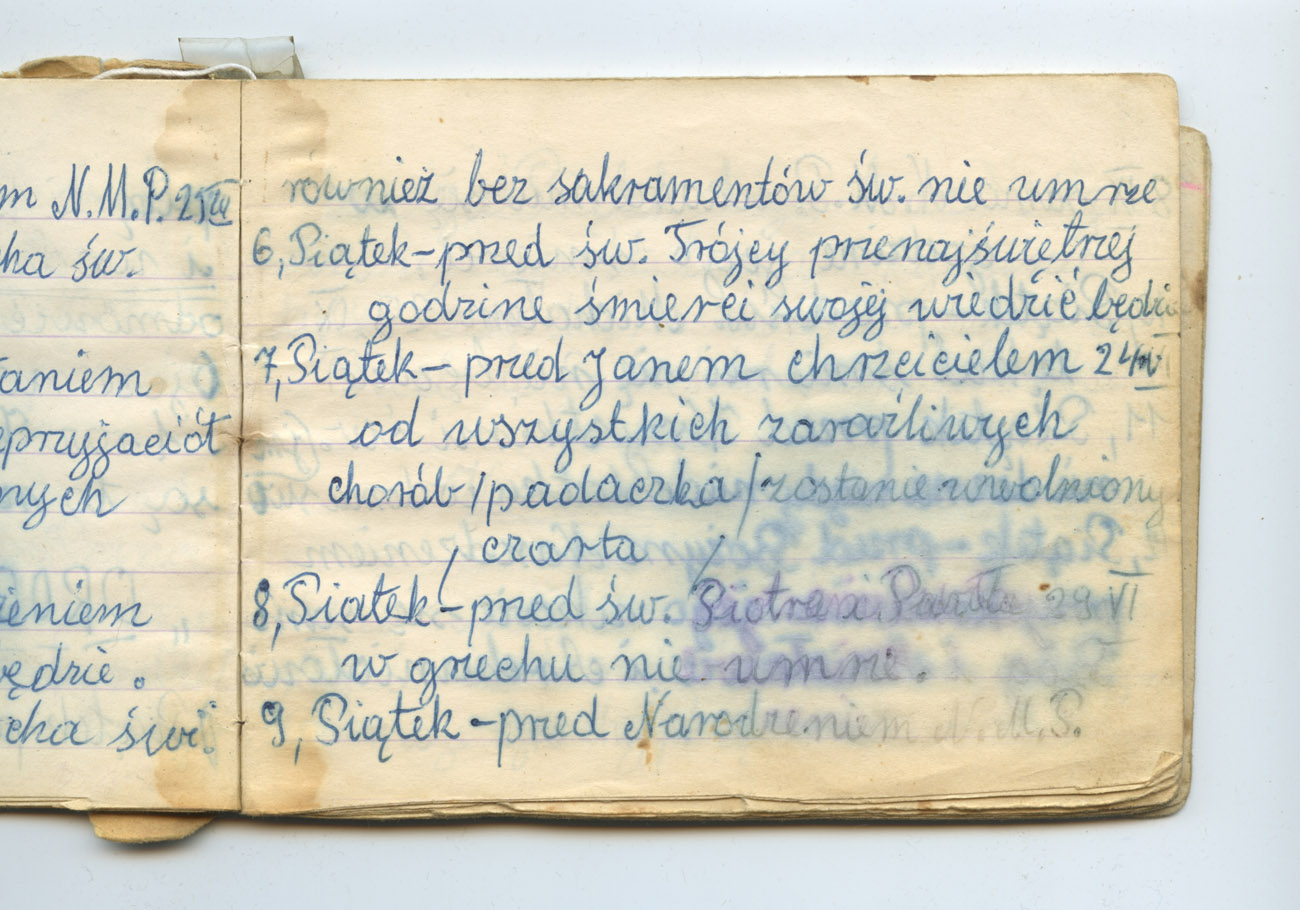 m N.M.P. 25
ka św.
taniem
eprzyjaciół
nych
zeniem
ędzie.
cha świ.
również bez sakramentów św. nie umrze
6, Piątek - pred św. Trójcy prienajświętrzej
godzine śmierci swojej wiedzić będzi
7, Piątek - pred Janem chrzcicielem 24 VI
od wszystkich zaraźliwych
choráb /padaczka/ zostanie uwolniony
, czarta /
8, Piatek - pred św. Piotra i Pawła 29 VI
w grzechu nie umrze.
9, Piątek - pred Narodzeniem N.M.P.